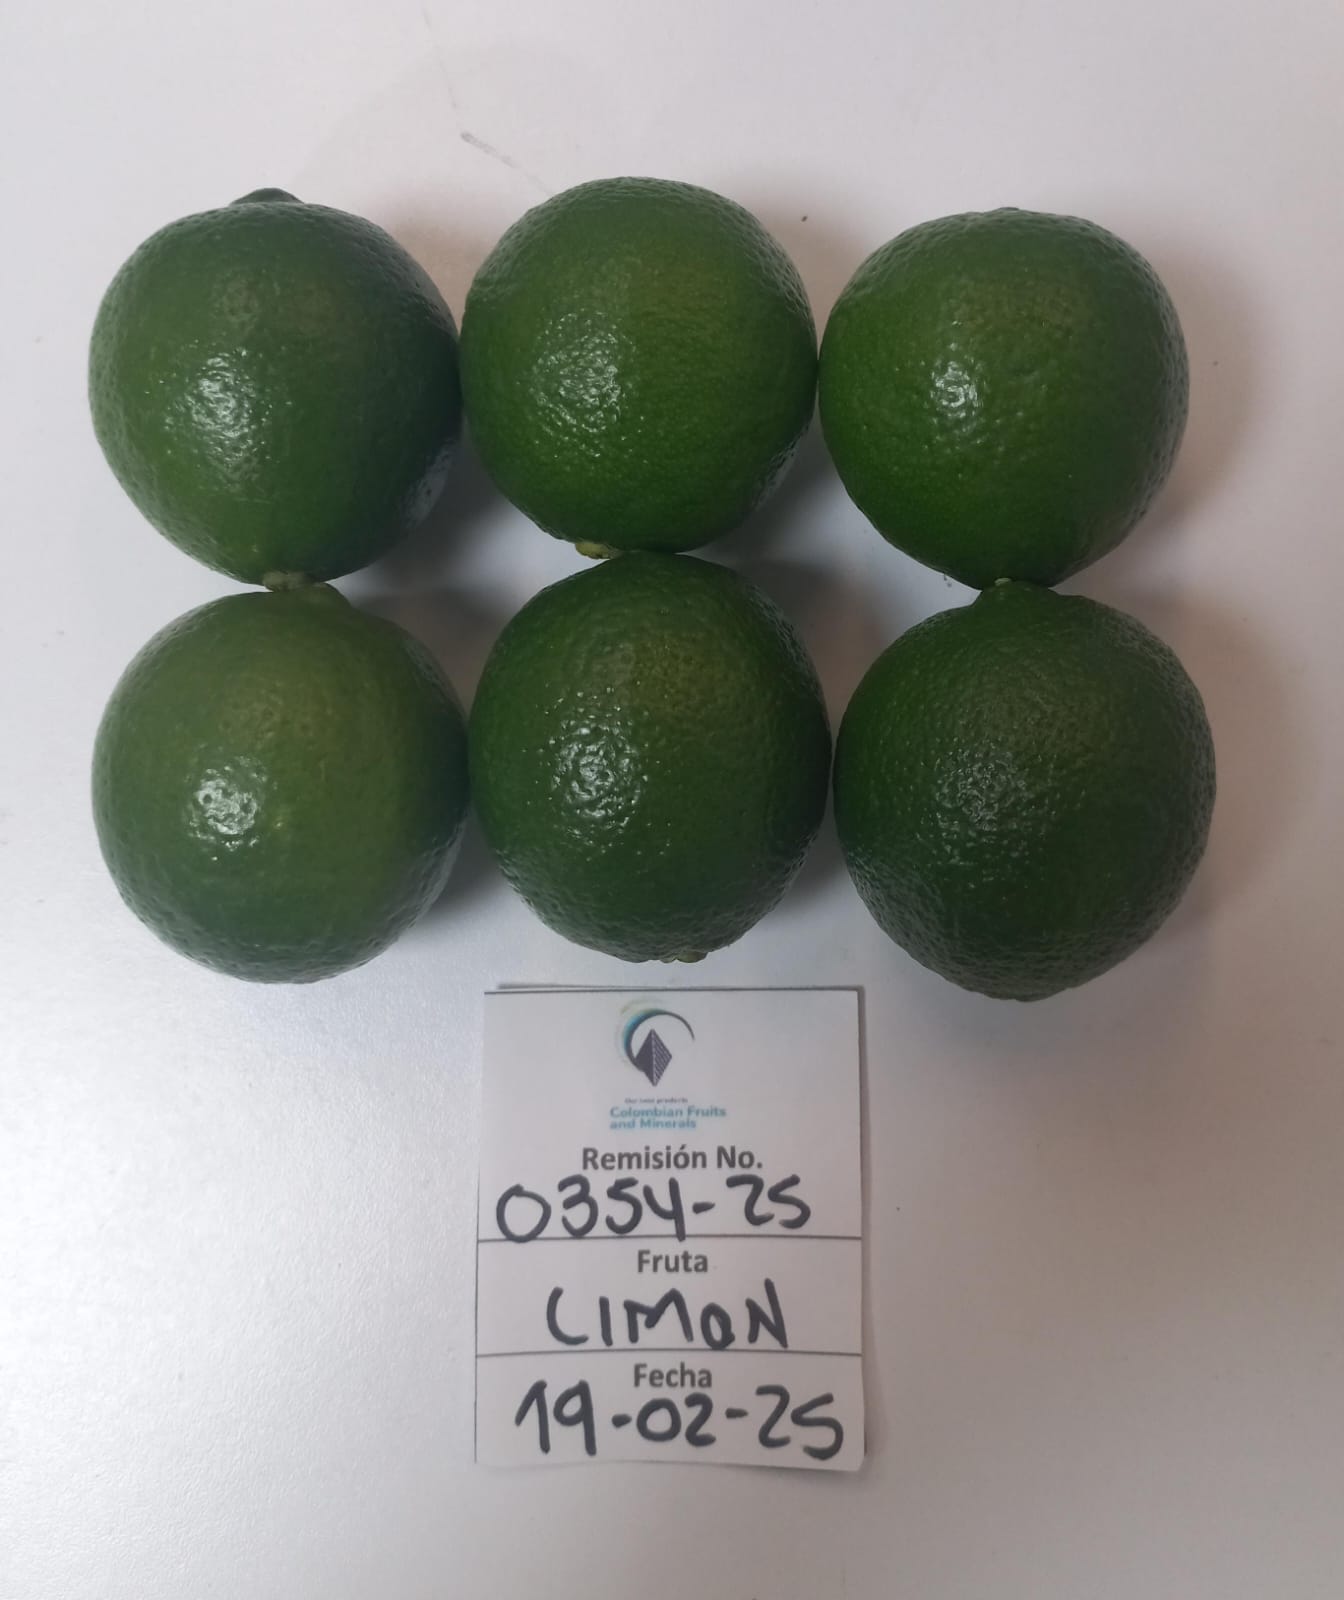 Our best products
Colombian Fruits
and Minerals
Remisión No.
0354-25
Fruta
LIMON
Fecha
19-02-25